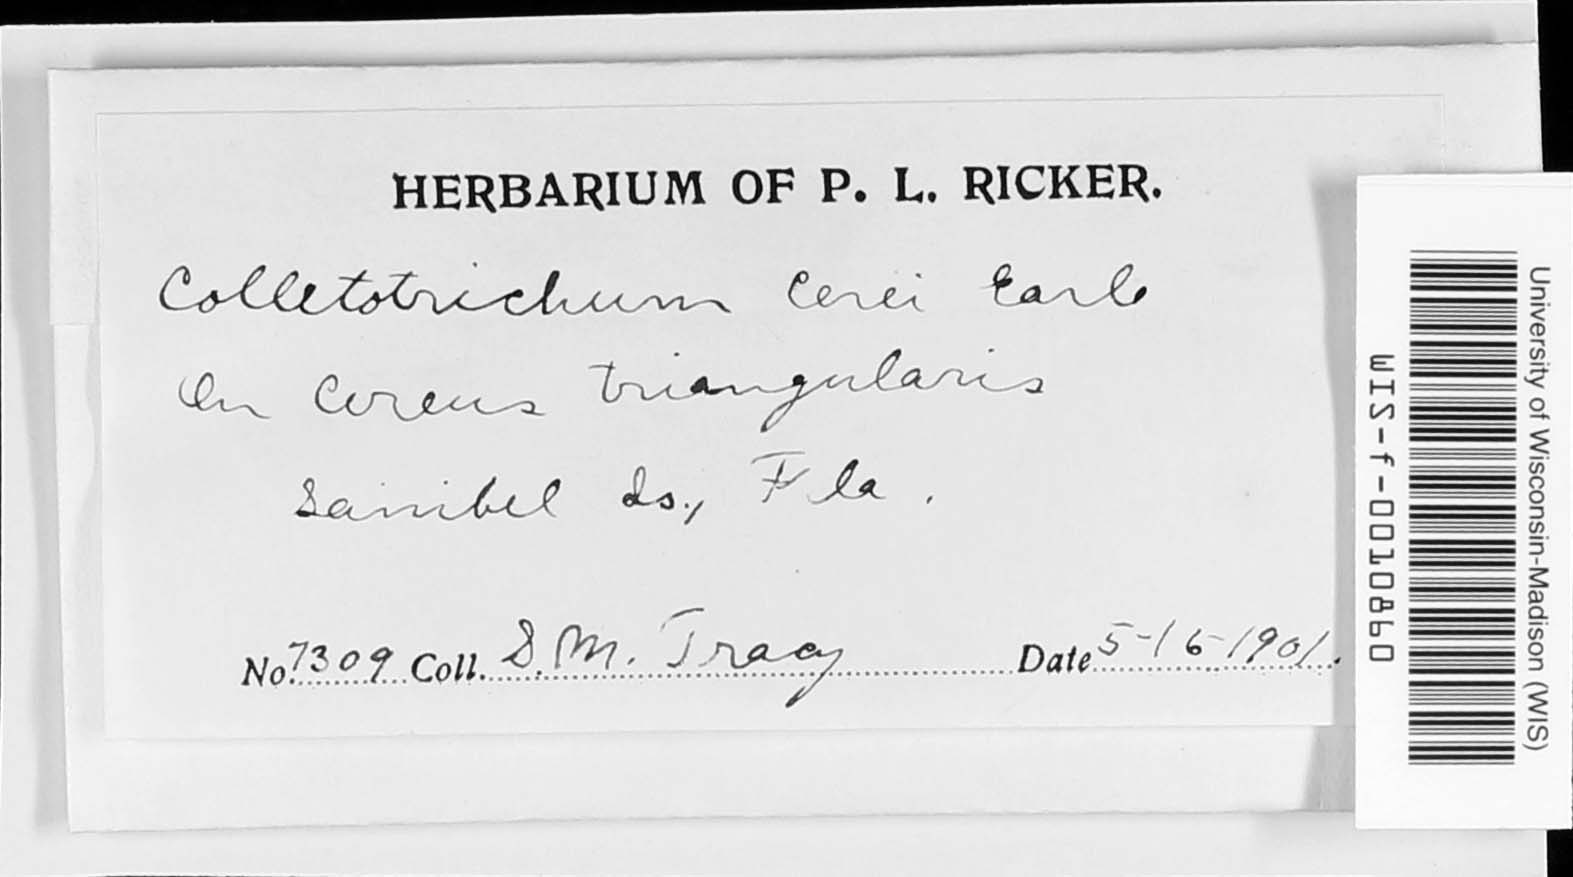 HERBARIUM OF P. L. RICKER.
Colletotrichum Cerei Earle
On Cereus triangularis
Sanibel Is., Fla.
No. 7309 Coll. S. M. Tracy Date 5-16-1901.
University of Wisconsin-Madison (WIS)
WIS-f-0010860